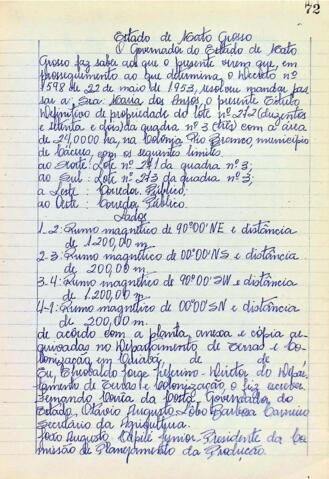 72
Estado de Mato Grosso
O Governador do Estado de Mato
Grosso faz saber aos que o presente virem que, em
prosseguimento ao que determina o Decreto nº
1598 de 22 de maio de 1953, resolveu mandar pas
sar a, Sra Maria dos Anjos, o presente Título
Definitivo de propriedade do lote nº 272 (duzentos
e setenta e dois) da quadra nº 3 (três) com a área
de 24,0000 ha, na Colonia Rio Branco, município
de Cáceres, com os seguintes limites.
ao Norte: Lote nº 271 da quadra nº 3;
ao Sul: Lote nº 273 da quadra nº 3;
a Leste: Corredor Público;
ao Oeste: Corredor Público.
Lados
1-2: Rumo magnético de 90º00'NE e distância
de 1.200,00 m.
2-3: Rumo magnético de 00º00'NS e distância
de 200,00 m.
3-4: Rumo magnético de 90º00'SW e distância
de 1.200,00 m.
4-1: Rumo magnético de 00º00'SN e distância
de 200,00 m.
de acordo com a planta anexa e cópia ar
quivadas no Departamento de Terras e Co
lonização, em Cuiabá, de de
Eu, Theobaldo Jorge Zeferino - Diretor do Depar
tamento de Terras e Colonização, o fiz escrever
Fernando Corrêa da Costa, Governador do
Estado, Otávio Augusto Lobo Barbosa Carneiro
Secretário da Agricultura.
João Augusto Capilé Junior - Presidente da Co
missão de Planejamento da Produção.